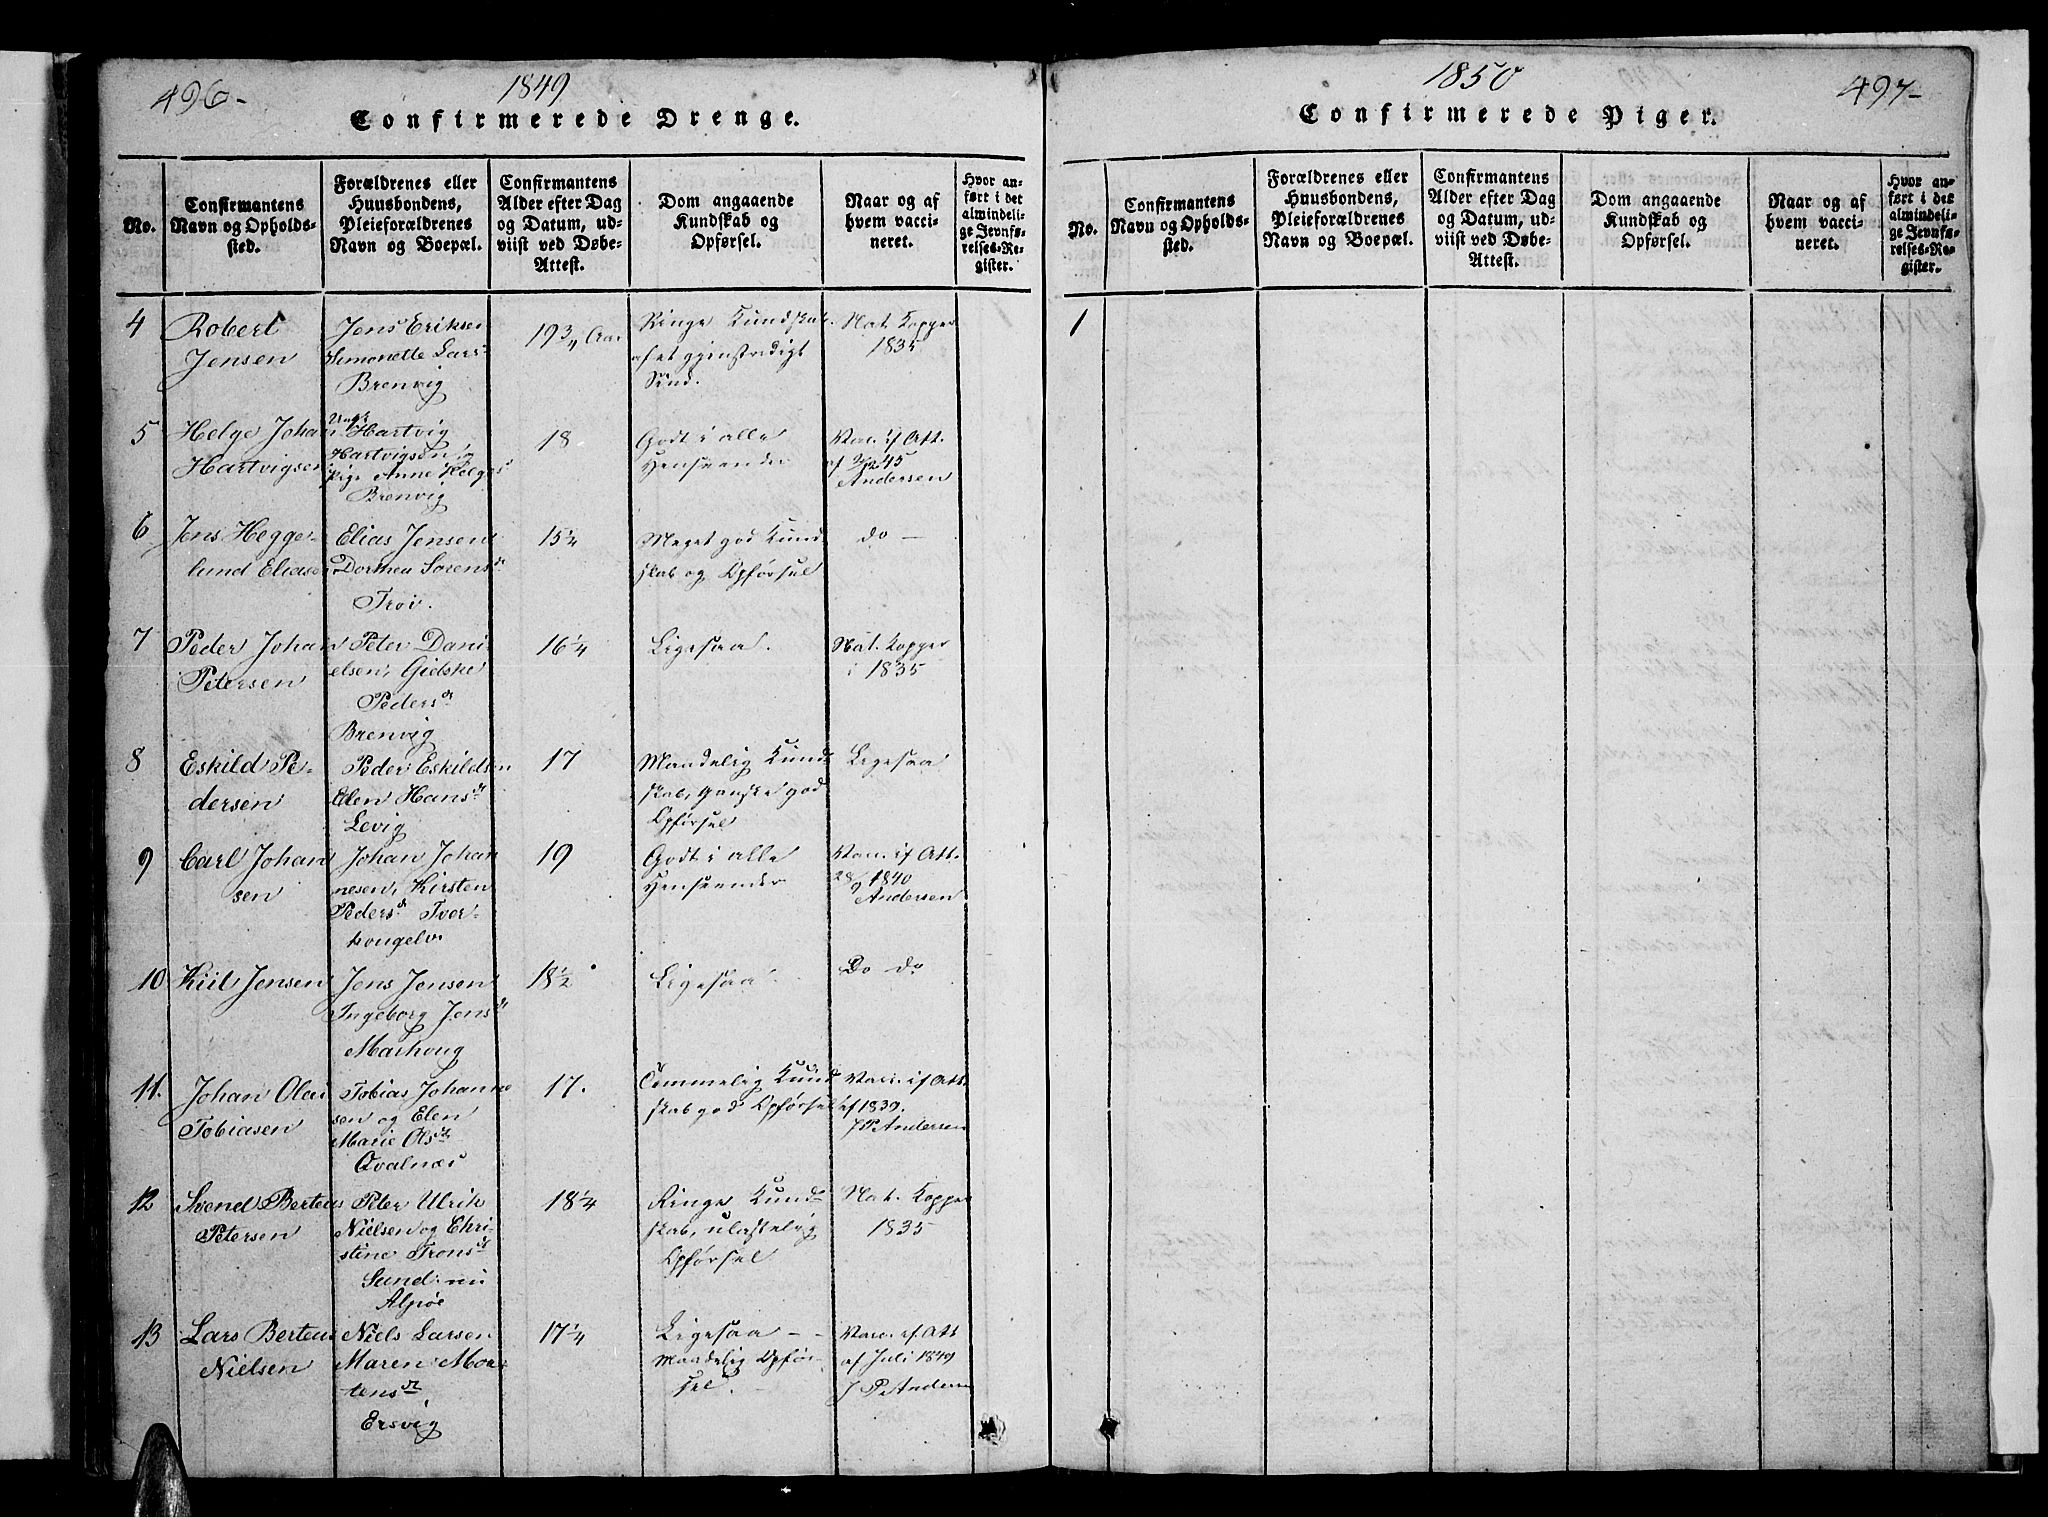 496-
1849
Confirmerede Drenge.
No.
Confirmantens
Navn og Opholds-
sted.
Forældrenes eller
Huusbondens,
Pleieforældrenes
Navn og Boepæl.
Confirmantens
Alder efter Dag
og Datum, ud-
viist ved Døbe-
Attest.
Dom angaaende
Kundskab og
Opførsel.
Naar og af
hvem vacci-
neret.
Hvor an-
ført i det
almindeli-
ge Jevnfø-
relses-Re-
gister.
4
Robert
Jensen
Jens Eriksen
Simonette Lars
Brenvig
19 3/4 Aar
Ringe Kundskab
af et gjenstridigt
Sind.
Nat. Kopper
1835
5
Helge Johan
Hartvigsen
Ungk
Hartvig
Hartvigsen,
Pige Anne Helgesd
Brenvig
18
Godt i alle
Henseender
Vacc. if Att.
af 2/12 45
Andersen
6
Jens Hegge-
lund Eliasen
Elias Jensen
Dorthea Sørensd
Troi.
15 1/4
Meget god Kund
skab og Opførsel
do -
7
Peder Johan
Petersen
Peter Dani
elsen, Gidske
Pedersd
Brenvig
16 1/4
Ligesaa.
Nat. Kopper
i 1835
8
Eskild Pe-
dersen
Peder Eskildsen
Elen Hansd
Levig
17
Maadelig Kund
skab, Ganske god
Opførsel
Ligesaa
9
Carl Johan
sen
Johan Johan
nesen, Kirsten
Pedersd Tver-
kongelv.
19
Godt i alle
Henseender
Vacc. if Att.
28/9 1840
Andersen
10
Kiil Jensen
Jens Jensen
Ingeborg Jensd
Marhoug
18 1/2
Ligesaa
Do do
11.
Johan Olai
Tobiasen
Tobias Johanne
sen og Elen
Marie Olsd
Qvalnæs
17.
Temmelig Kund
skab god Opførsel
Vacc. if Att.
af 1839.
J P Andersen
12
Svend Berteus
Petersen
Peter Ulrik
Nielsen og Chri-
stine Tronsd
Sund: nu
18 1/4
Ringe Kund
skab, ulastelig
Opførsel
Nat. Kopper
1835
13
Lars Berteus
Nielsen
Niels Larsen
Maren Mor-
tensd
Ersvig
17 1/4
Ligesaa - -
Maadelig Opfør-
sel.
Vacc. if. Att
af Juli 1849
J P Andersen
1850
497-
Confirmerede Piger.
No.
Confirmantens
Navn og Opholds-
sted.
Forældrenes eller
Huusbondens,
Pleieforældrenes
Navn og Boepæl.
Confirmantens
Alder efter Dag
og Datum, ud-
viist ved Døbe-
Attest.
Dom angaaende
Kundskab og
Opførsel.
Naar og af
hvem vacci-
neret.
Hvor an-
ført i det
almindeli-
ge Jevnfø-
relses-Re-
gister.
1